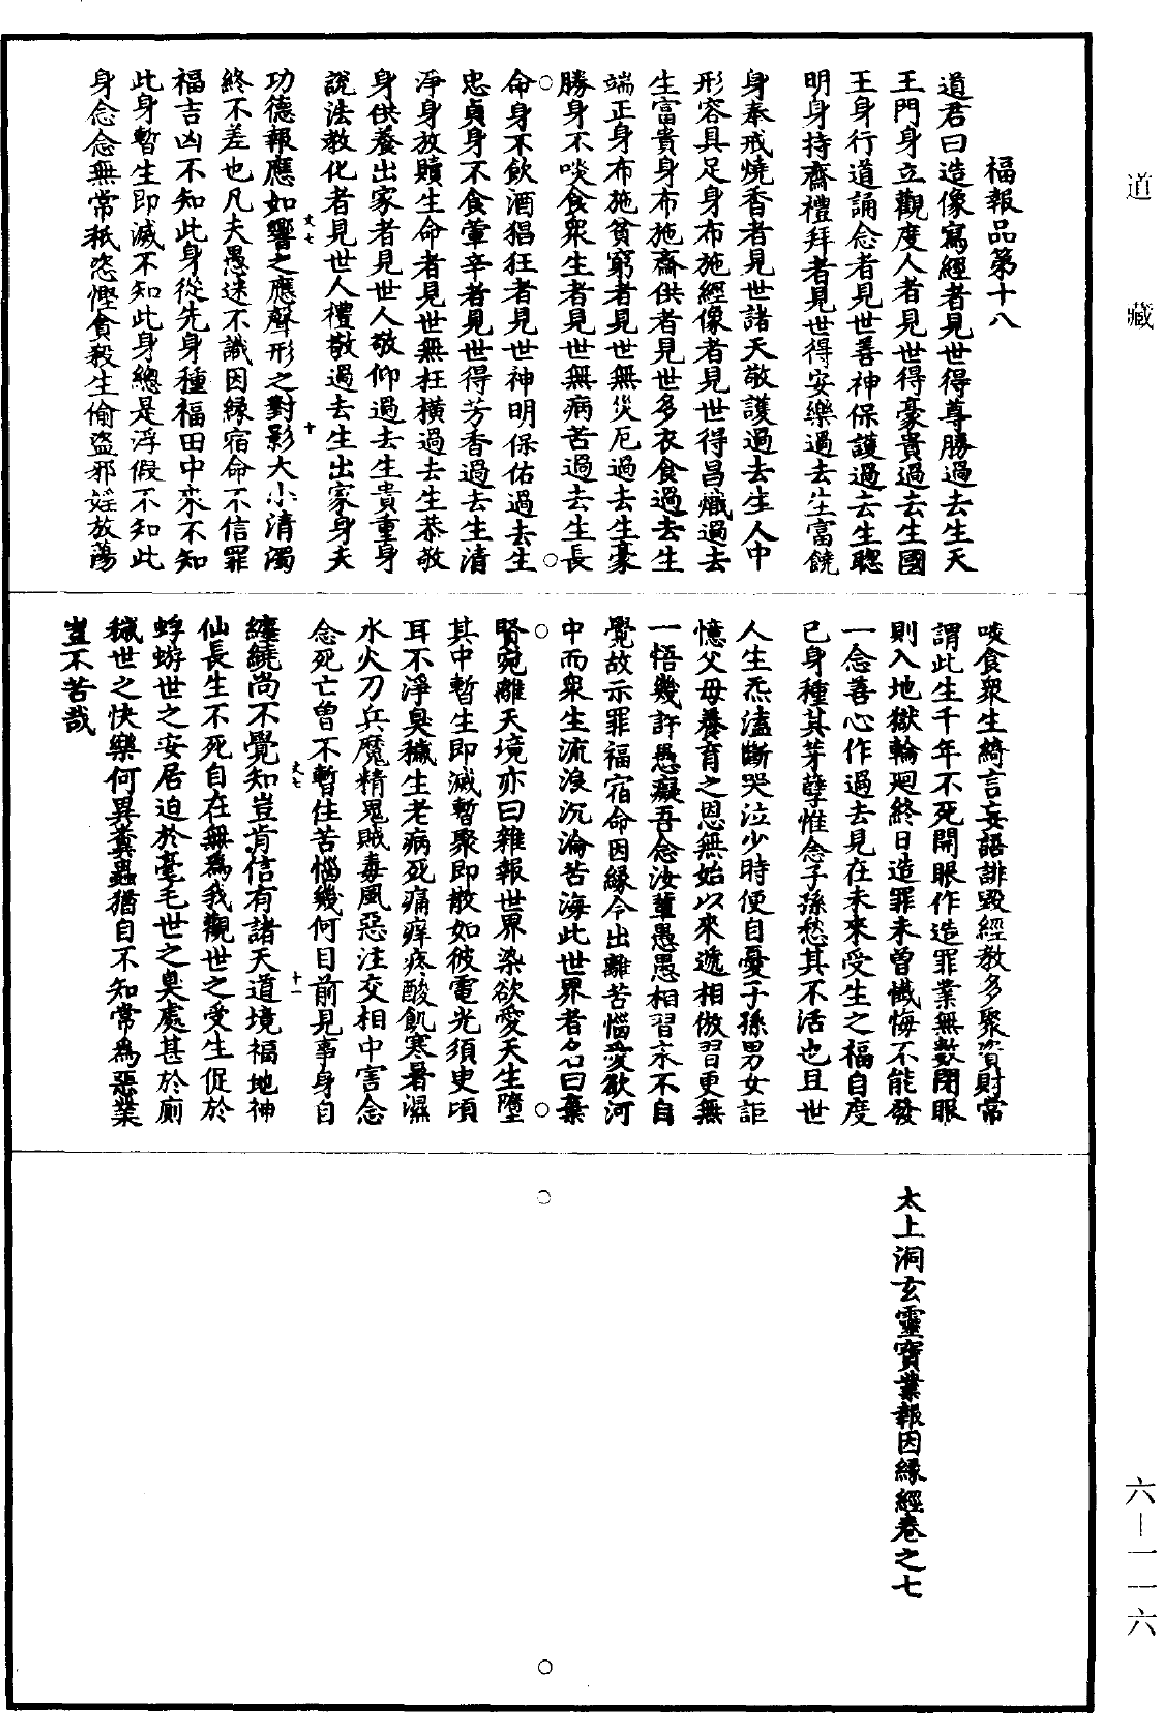 道藏
福報品第十八
道君曰造像寫經者見世得尊勝過去生天
王門身立觀度人者見世得豪貴過去生國
王身行道誦念者見世善神保護過去生聰
明身持齋禮拜者見世得安樂過去生富饒
身奉戒燒香者見世諸天敬護過去生人中
形容具足身布施經像者見世得昌熾過去
生富貴身布施齋供者見世多衣食過去生
端正身布施貧窮者見世無災厄過去生豪
勝身不啖食眾生者見世無病苦過去生長
命身不飲酒猖狂者見世神明保佑過去生
忠貞身不食葷辛者見世得芳香過去生清
淨身放贖生命者見世無枉橫過去生恭敬
身供養出家者見世人敬仰過去生貴重身
說法教化者見世人禮敬過去生出家身夫
文七
十
功德報應如響之應聲形之對影大小清濁
終不差也凡夫愚迷不識因緣宿命不信罪
福吉凶不知此身從先身種福田中來不知
此身暫生即滅不知此身總是浮假不知此
身念念無常秖恣慳貪殺生偷盜邪婬放蕩
啖食眾生綺言妄語誹毀經教多聚資財常
謂此生千年不死開眼作造罪業無數閉眼
則入地獄輪迴終日造罪未曾懺悔不能發
一念善心作過去見在未來受生之福自度
已身種其芽孽惟念子孫愁其不活也且世
人生炁溘斷哭泣少時便自憂子孫男女詎
憶父母養育之恩無始以來遞相倣習更無
一悟幾許愚癡吾念汝輩愚愚相習永不自
覺故示罪福宿命因緣令出離苦惱愛欲河
中而眾生流浪沉淪苦海此世界者名曰棄
賢宛離天境亦曰雜報世界染欲愛天生墮
其中暫生即滅暫聚即散如彼電光須臾頃
耳不淨臭穢生老病死痛痒疼酸飢寒暑濕
水火刀兵魔精鬼賊毒風惡注交相中害念
念死亡曾不暫住苦惱幾何目前見事身自
文七
十一
纏繞尚不覺知豈肯信有諸天道境福地神
仙長生不死自在無為我觀世之受生促於
蜉蝣世之安居迫於毫毛世之臭處甚於廁
穢世之快樂何異糞蟲猶自不知常為惡業
豈不苦哉
太上洞玄靈寶業報因緣經卷之七
六—一一六